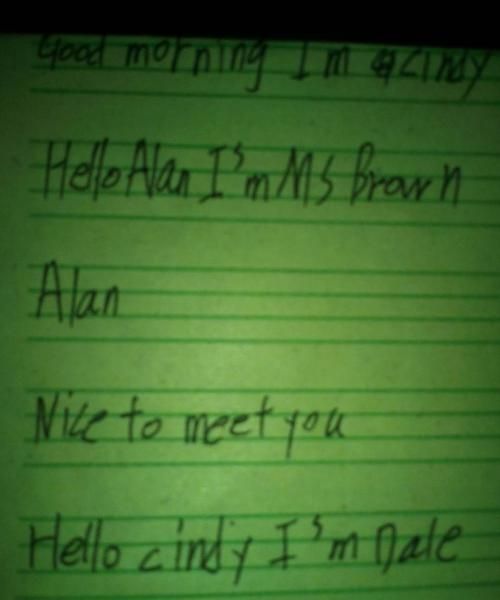 Good morning Im cindy
Hello Alan I'sm Ms Brown
Alan
Nice to meet you
Hello cindy I'sm Dale